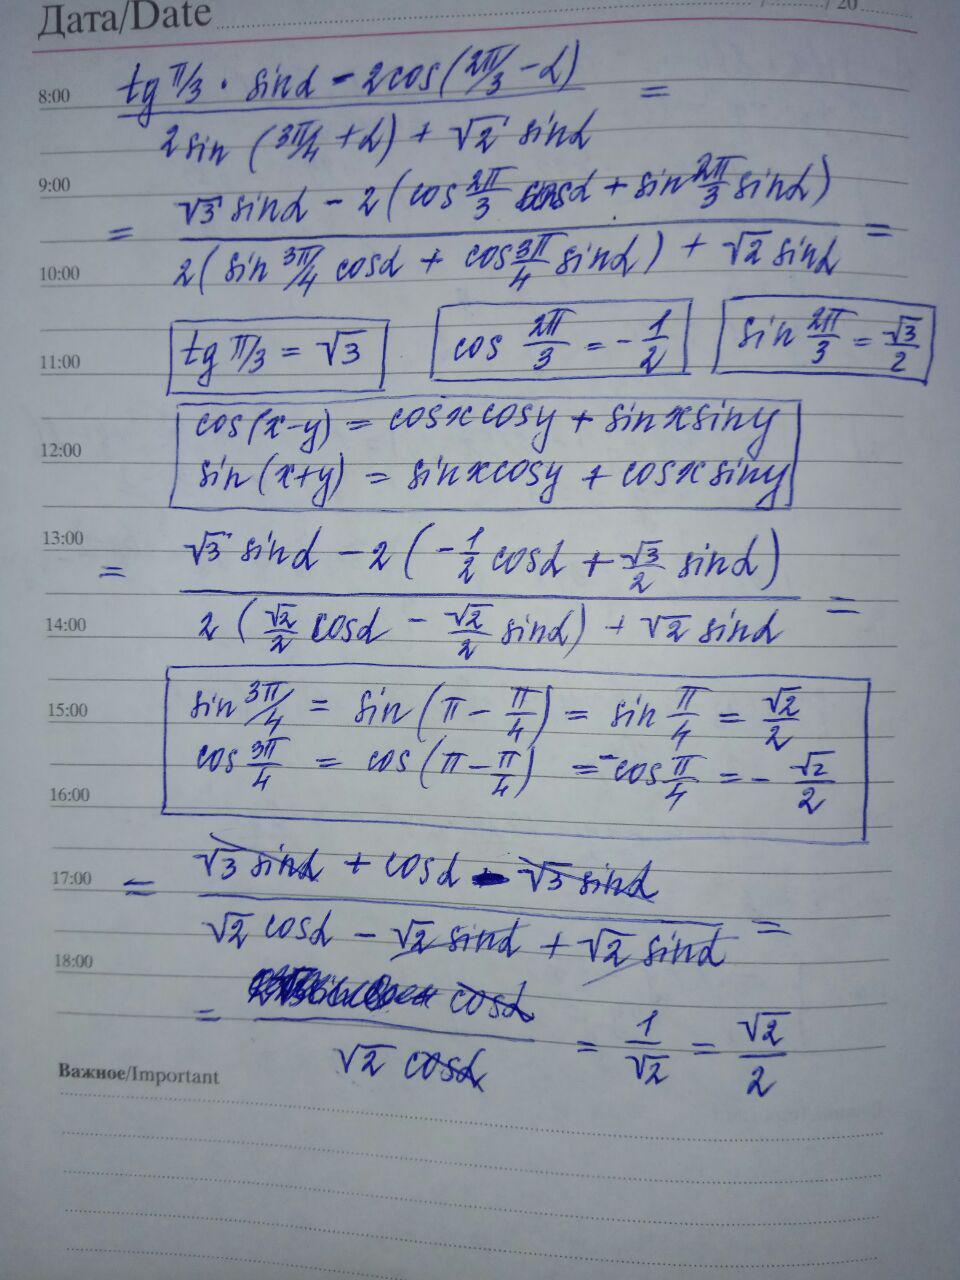 Дата/Date / / 20
8:00
tg π/3 · sin α − 2cos(2π/3 − α) / 2sin(3π/4 + α) + √2 sin α =
9:00
= √3 sin α − 2(cos 2π/3 cos α + sin 2π/3 sin α) / 2(sin 3π/4 cos α + cos 3π/4 sin α) + √2 sin α =
10:00
tg π/3 = √3 cos 2π/3 = −1/2 sin 2π/3 = √3/2
11:00
cos(x−y) = cosx cosy + sinx siny
12:00
sin(x+y) = sinx cosy + cosx siny
13:00
= √3 sin α − 2(−1/2 cos α + √3/2 sin α) / 2(√2/2 cos α − √2/2 sin α) + √2 sin α =
14:00
sin 3π/4 = sin(π − π/4) = sin π/4 = √2/2
15:00
cos 3π/4 = cos(π − π/4) = −cos π/4 = −√2/2
16:00
= √3 sin α + cos α − √3 sin α / √2 cos α − √2 sin α + √2 sin α =
17:00
18:00
= cos α / √2 cos α = 1/√2 = √2/2
Важное/Important